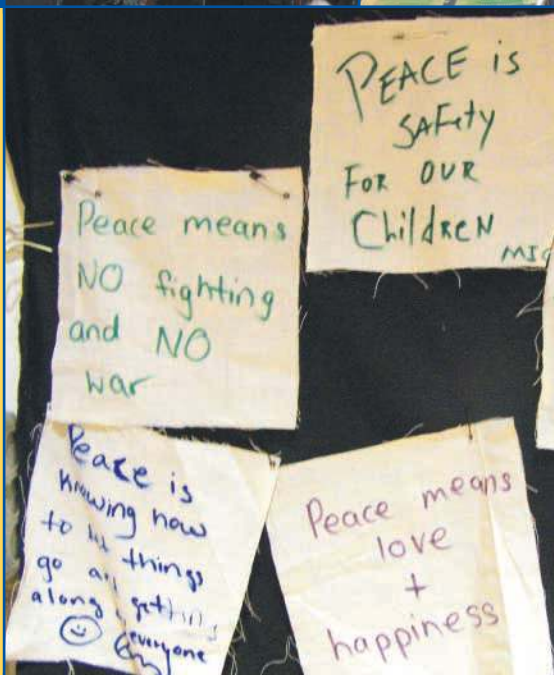 PEACE is
SAFEty
FOR OUR
ChildREN
Peace means
NO fighting
and NO
war
Peace is
knowing how
to let things
go and getting
along,
everyone
Peace means
love
+
happiness